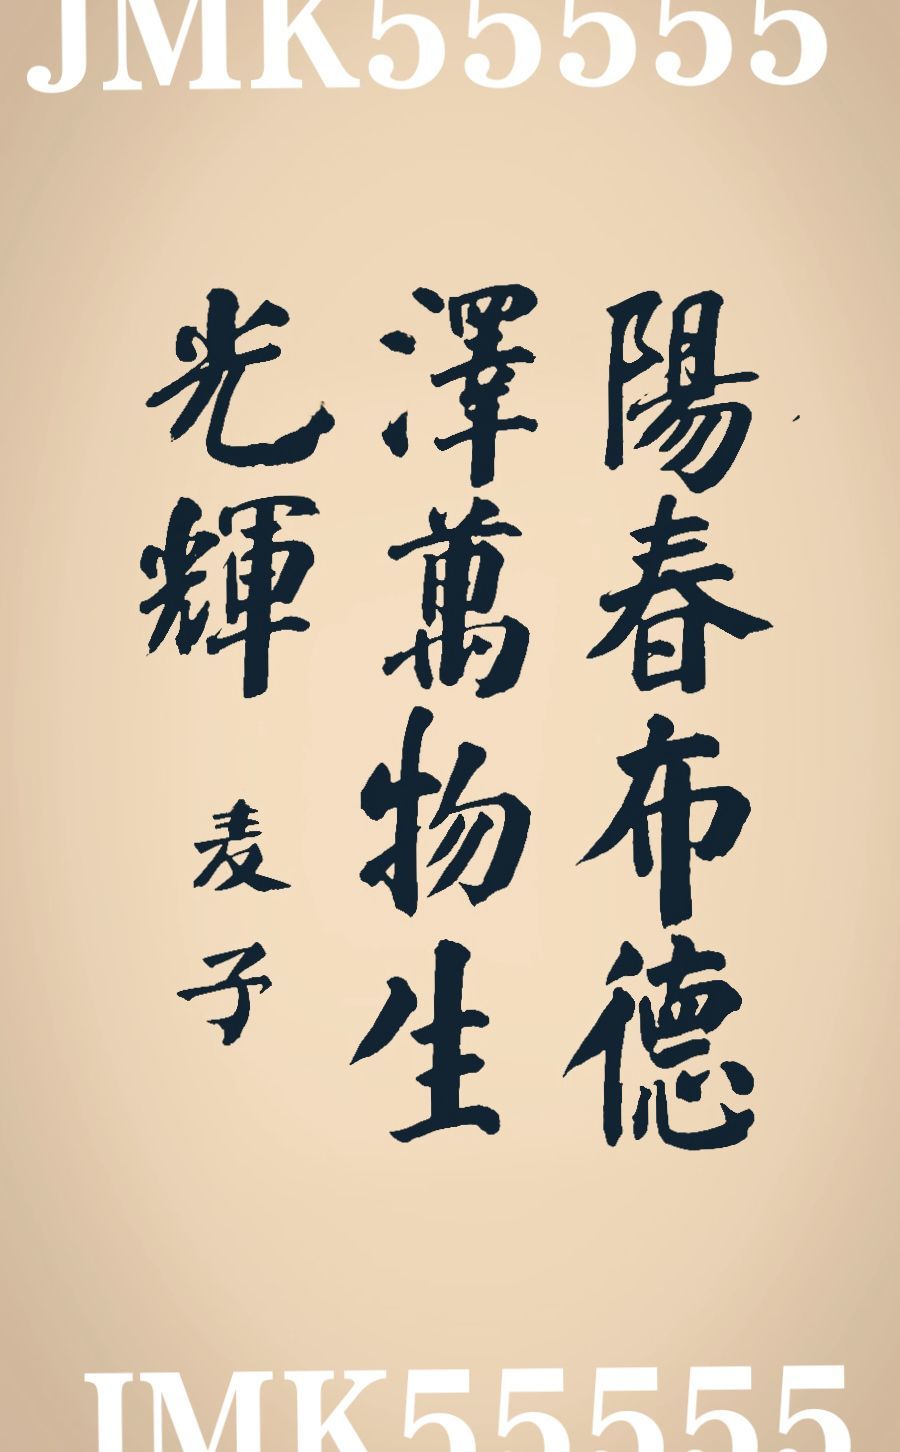 JMK55555
陽春布德
澤萬物生
光輝
麦子
JMK55555